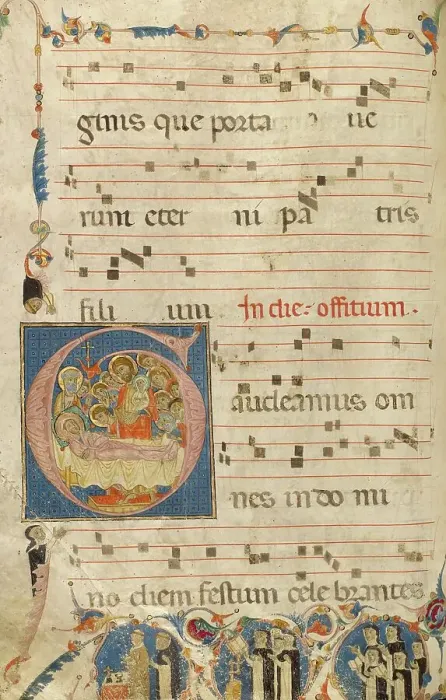 ginis que porta ue
rum eter ni pa tris
fili um In die: offitium.
Gaudeamus om
nes in do mi
no diem festum cele brantes